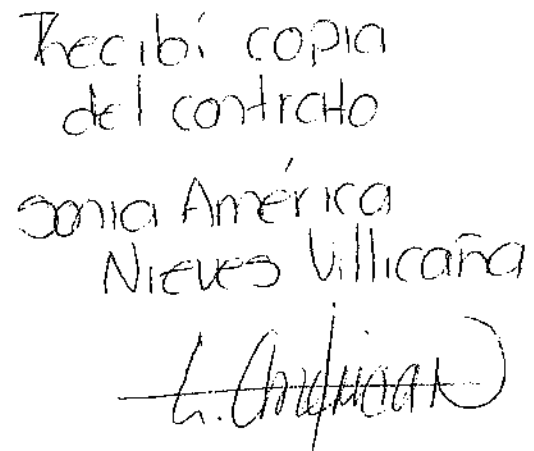 Recibí copia
del contrato
Sonia América
Nieves Villicaña